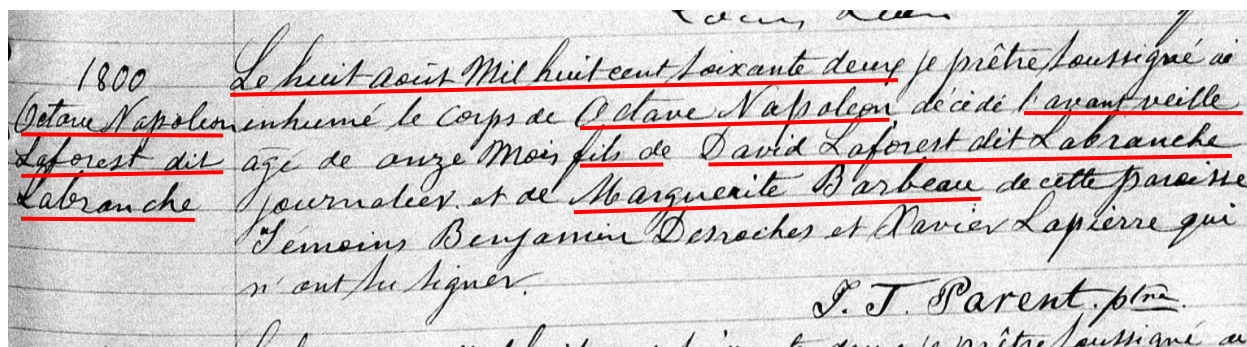 1800
Octave Napoleon
Laforest dit
Labranche
Le huit août Mil huit cent soixante deux je prêtre soussigné ai
inhumé le corps de Octave Napoleon, décédé l'avant veille
âgé de onze Mois fils de David Laforest dit Labranche
journalier et de Marguerite Barbeau de cette paroisse
Témoins Benjamin Desroches et Xavier Lapierre qui
n'ont su signer.
J. T. Parent. ptre
je prêtre soussigné ai